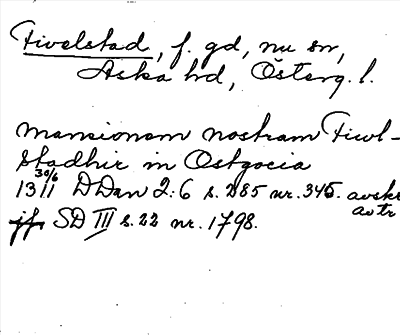 Fivelstad, f. gd, nu sn,
Aska hd, Österg. l.
mansionem nostram Fiwl-
stadhir in Ostgocia
13 30/6 11 DDan 2:6 s. 285 nr. 345. avskr
av tr
jfr SD III s. 22 nr. 1798.